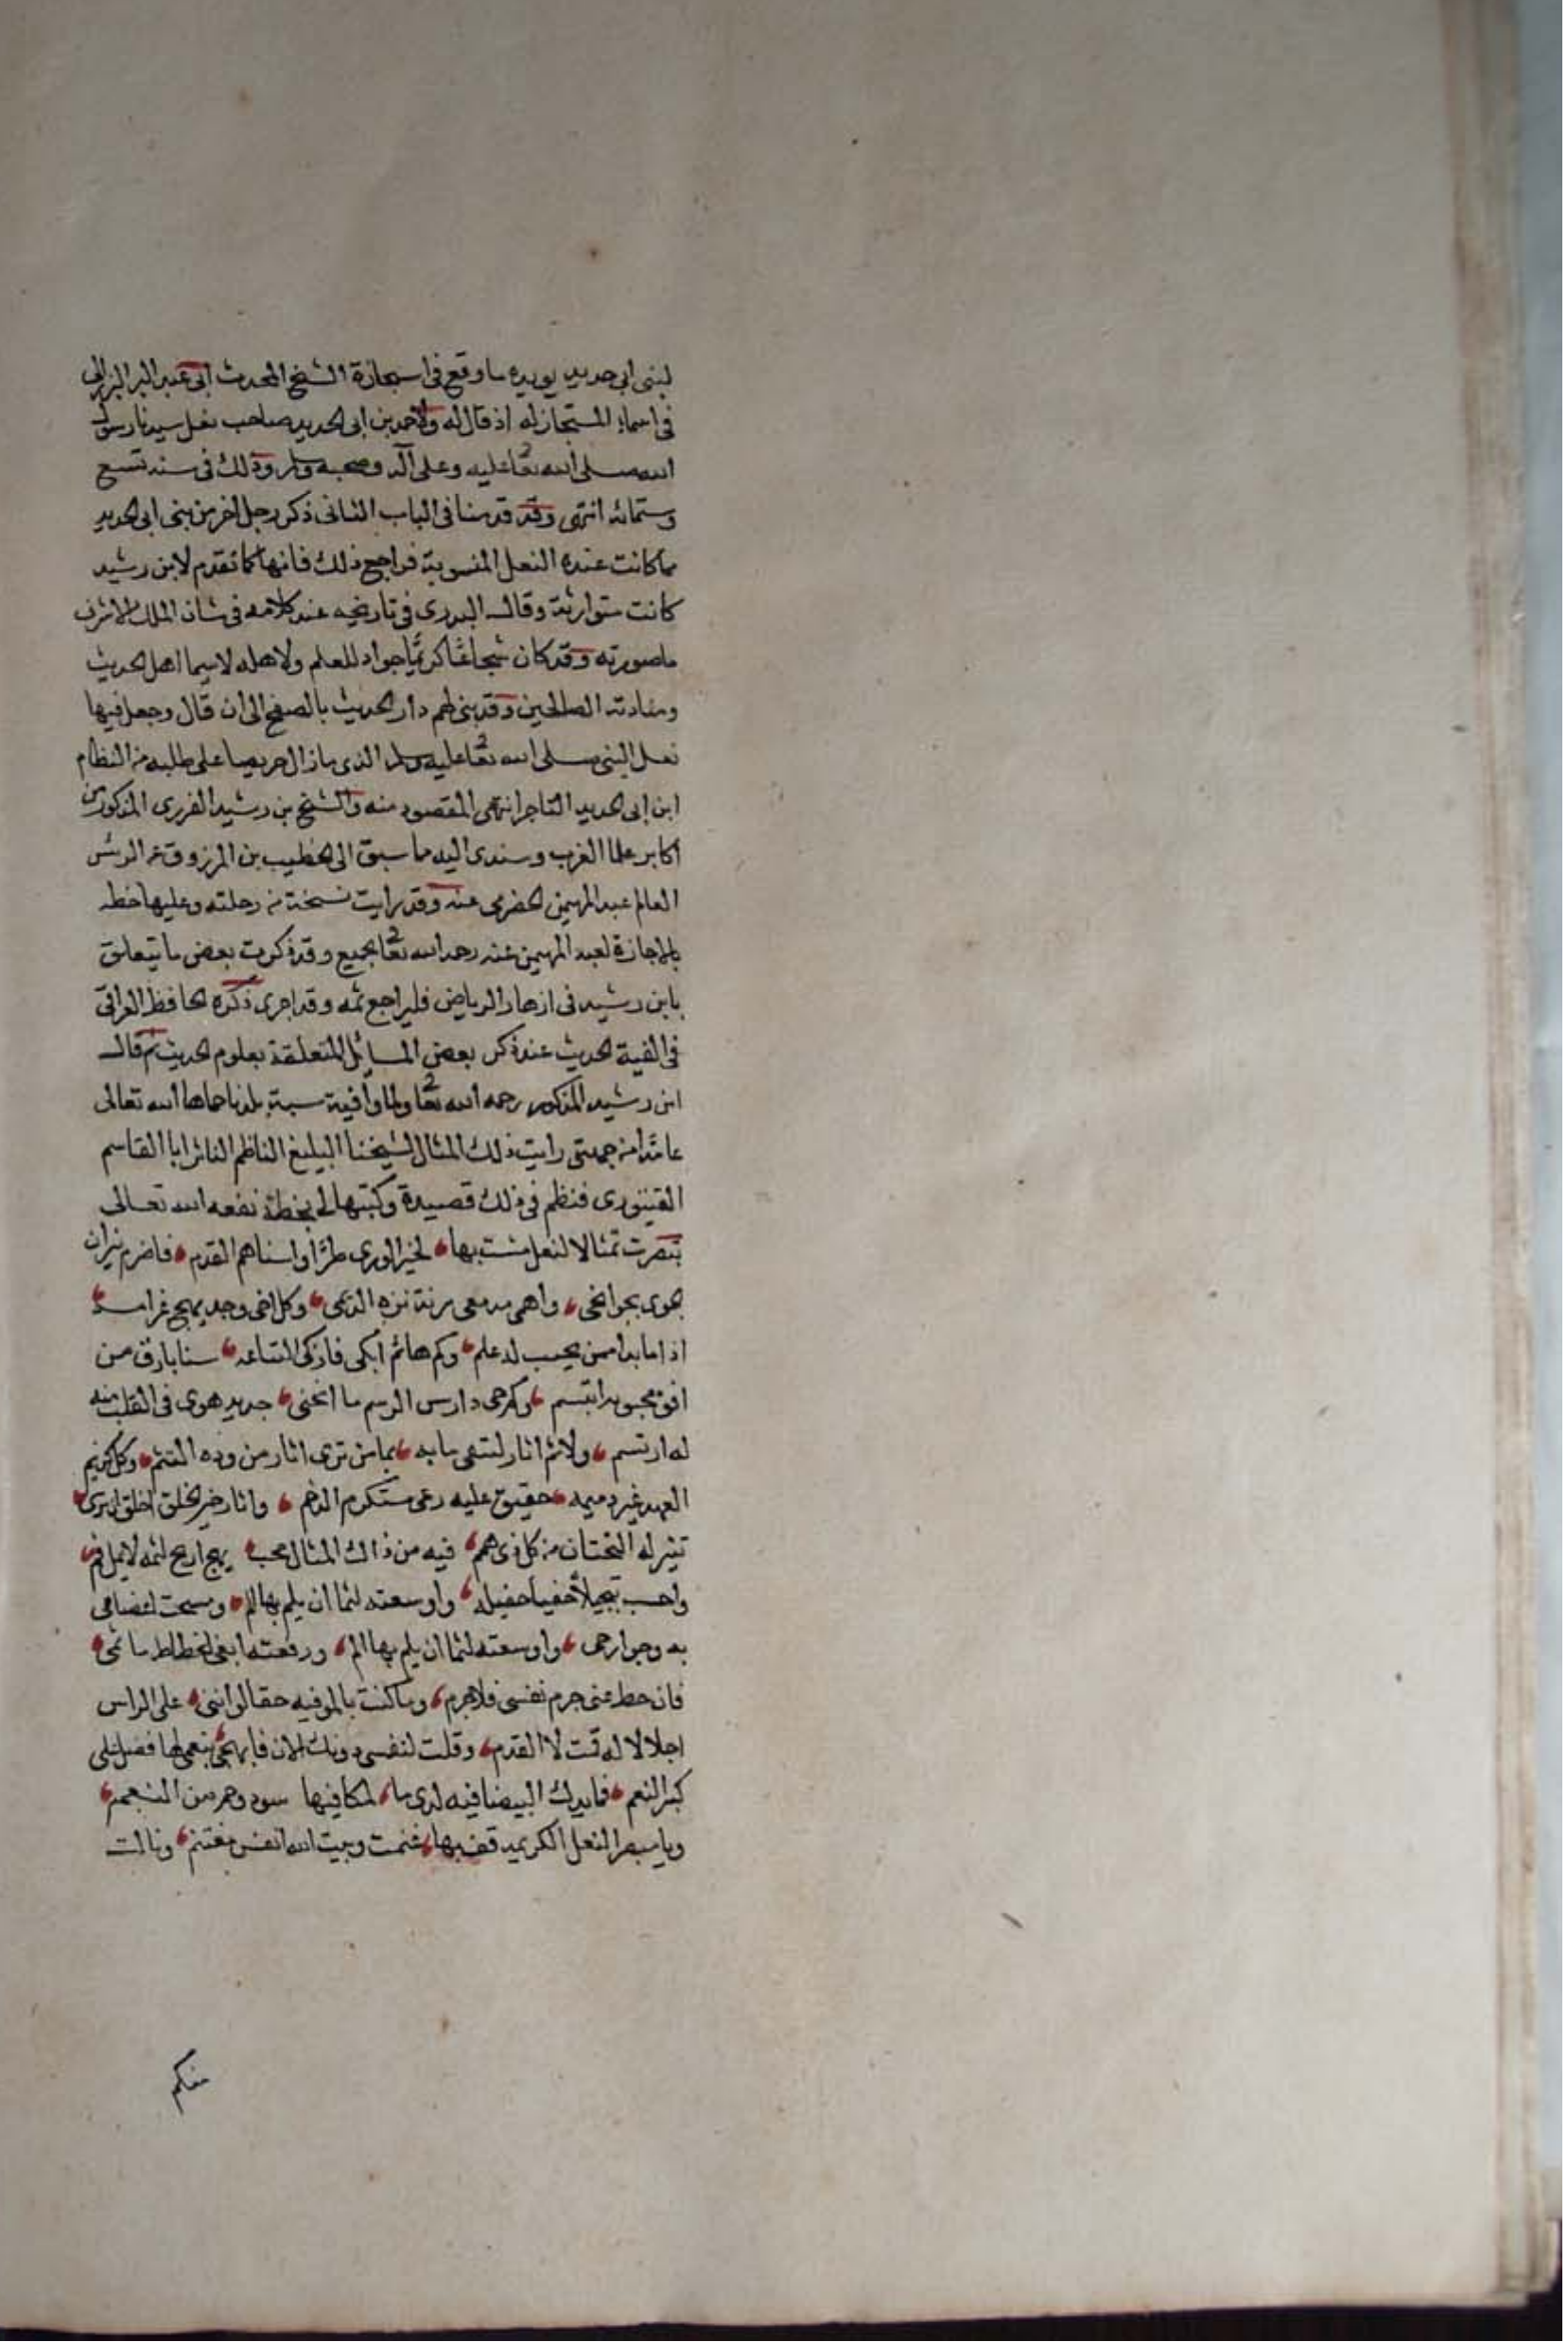 لبنى ابى حديد يويده ماوقع فى استجازة الشيخ المحدث ابى عبد البر البرزالى
فى اسماء المستجاز له اذ قال له ولاحمد بن ابى الحديد صاحب نعل سيدنا رسول
الله صلى الله تعا عليه وعلى آله وصحبه وسلم وذلك فى سنه تسع
وستمائه انتهى وقد قدمنا فى الباب الثانى ذكر رجل اخر من بنى ابى الحديد
مما كانت عنده النعل المنسوبة فراجع ذلك فانها كما تقدم لابن رشيد
كانت متوارثة وقال البدرى فى تاريخيه عند كلامه فى شان الملك الاشرف
ماصورته وقد كان شجاعًا كريمًا جواد للعلم ولاهله لاسيما اهل الحديث
ومنادته الصالحين وقد بنى لهم دار الحديث بالصفح الى ان قال وجعل فيها
نعل النبى صلى الله تعا عليه وسلم الذى مازال حريصا على طلبه من النظام
ابن ابى الحديد التاجر انتهى المقصود منه والشيخ بن رشيد الفهرى المذكور من
اكابر علما الغرب وسندى اليه ما سبق الى الخطيب بن المرزوق عن الرئس
العالم عبد المهيمن الحضرمى عنه وقد رايت نسخة من رحلته وعليها خطه
بالاجازة لعبد المهيمن عنه رحمه الله تعا بجميع وقد ذكرت بعض ما يتعلق
بابن رشيد فى ازهار الرياض فليراجع ثمه وقد اجرى ذكره الحافظ العراقى
فى الفية الحديث عند ذكر بعض المسايل المتعلقة بعلوم الحديث ثم قال
ابن رشيد المذكور رحمه الله تعا ولما وافيت سبتة بلدنا حماها الله تعالى
عائدا من جهتى رايت ذلك المثال لشيخنا البليغ الناظم الناثر ابا القاسم
القبتورى فنظم فى ذلك قصيدة وكتبها لى بخطه نفعه الله تعالى
تبصرت تمثالا لنعل مشت بها، لخير الورى طرًا واسناهم القدم، فاضرم نيران
الجوى بجوانحى، واهمى مدمعى مزنة الدمى، وكل اخى وجد يهيج غرامه،
اذا ما بدا ممن يحب له علم، وكم هائم ابكى فاذكى التياعه، سنا بارق من
افق محبوبه ابتسم، وكم حمى دارس الرسم ما انحنى، جديد هوى فى القلب منه
له ارتسم، ولاثم اثار لتشفى مابه، بما من ترى اثار من وده التثم، وكل كريم
العهد غير ذميمه، حقيق عليه رعى مستكرم الذمم، واثار خير الخلق اخلق ان ترى،
تثير له اشجان من كل ذى همم، فيه من ذاك المثال محب، يهيج اريج لثمه لايمل فم،
واحب تبجيلا حفيا حفيله، واوسعته لثما ان يلم بها الم، ومسحت اعضامى
به وجوارحى، واوسعته لثما ان يلم بها الم، ورفعته ابغى انحطاط ماثمى،
فان حط عنى جرم نفسى فلاجرم، وما كنت بالموفيه حقا لو اننى، على الراس
اجلالا له قمت لا القدم، وقلت لنفسى دونك الان فابهجى، بنعمى لها فضل على
كبر النعم، فما يدك البيضا فيه لدى ما، لمكافيها سود وحمر من النعم،
ويا مبصر النعل الكريمه قف بها، غنمت وبيت الله انفس مغتنم، ونالت
منكم